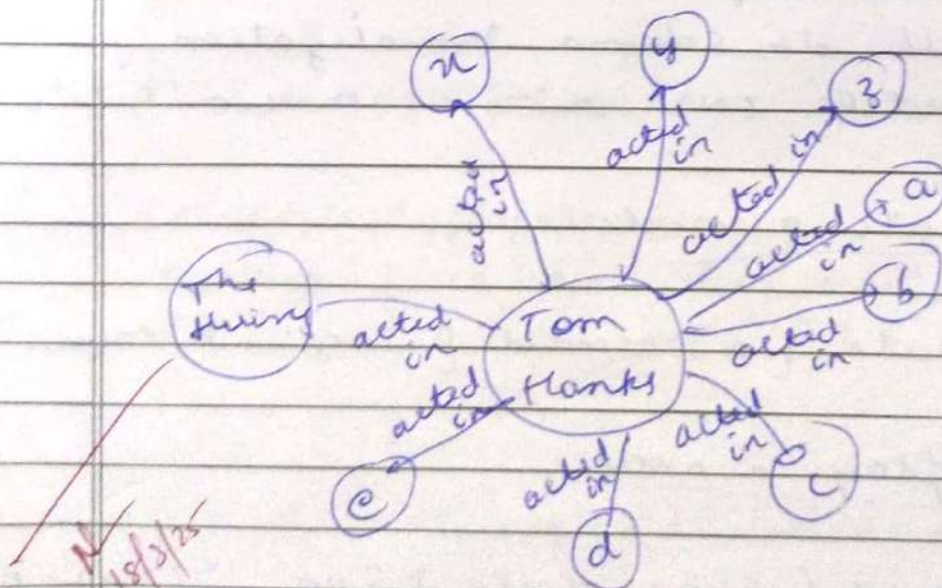 x
y
z
a
b
c
d
e
The
Tom
Hanks
acted
in
acted
in
acted
in
acted
in
acted
in
acted
in
acted
in
acted
in
acted
in
18/3/25